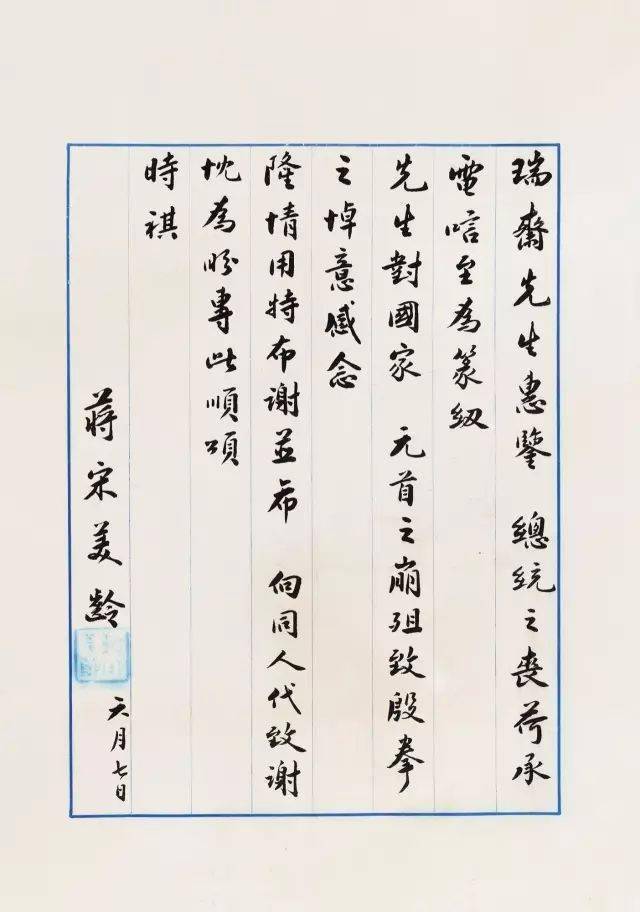 瑞齋先生惠鑒　總統之喪荷承
電唁至為篆紉
先生對國家　元首之崩殂致殷拳
之悼意感念
隆情用特布謝並希　向同人代致謝
忱為盼專此順頌
時祺
蔣宋美齡
六月七日